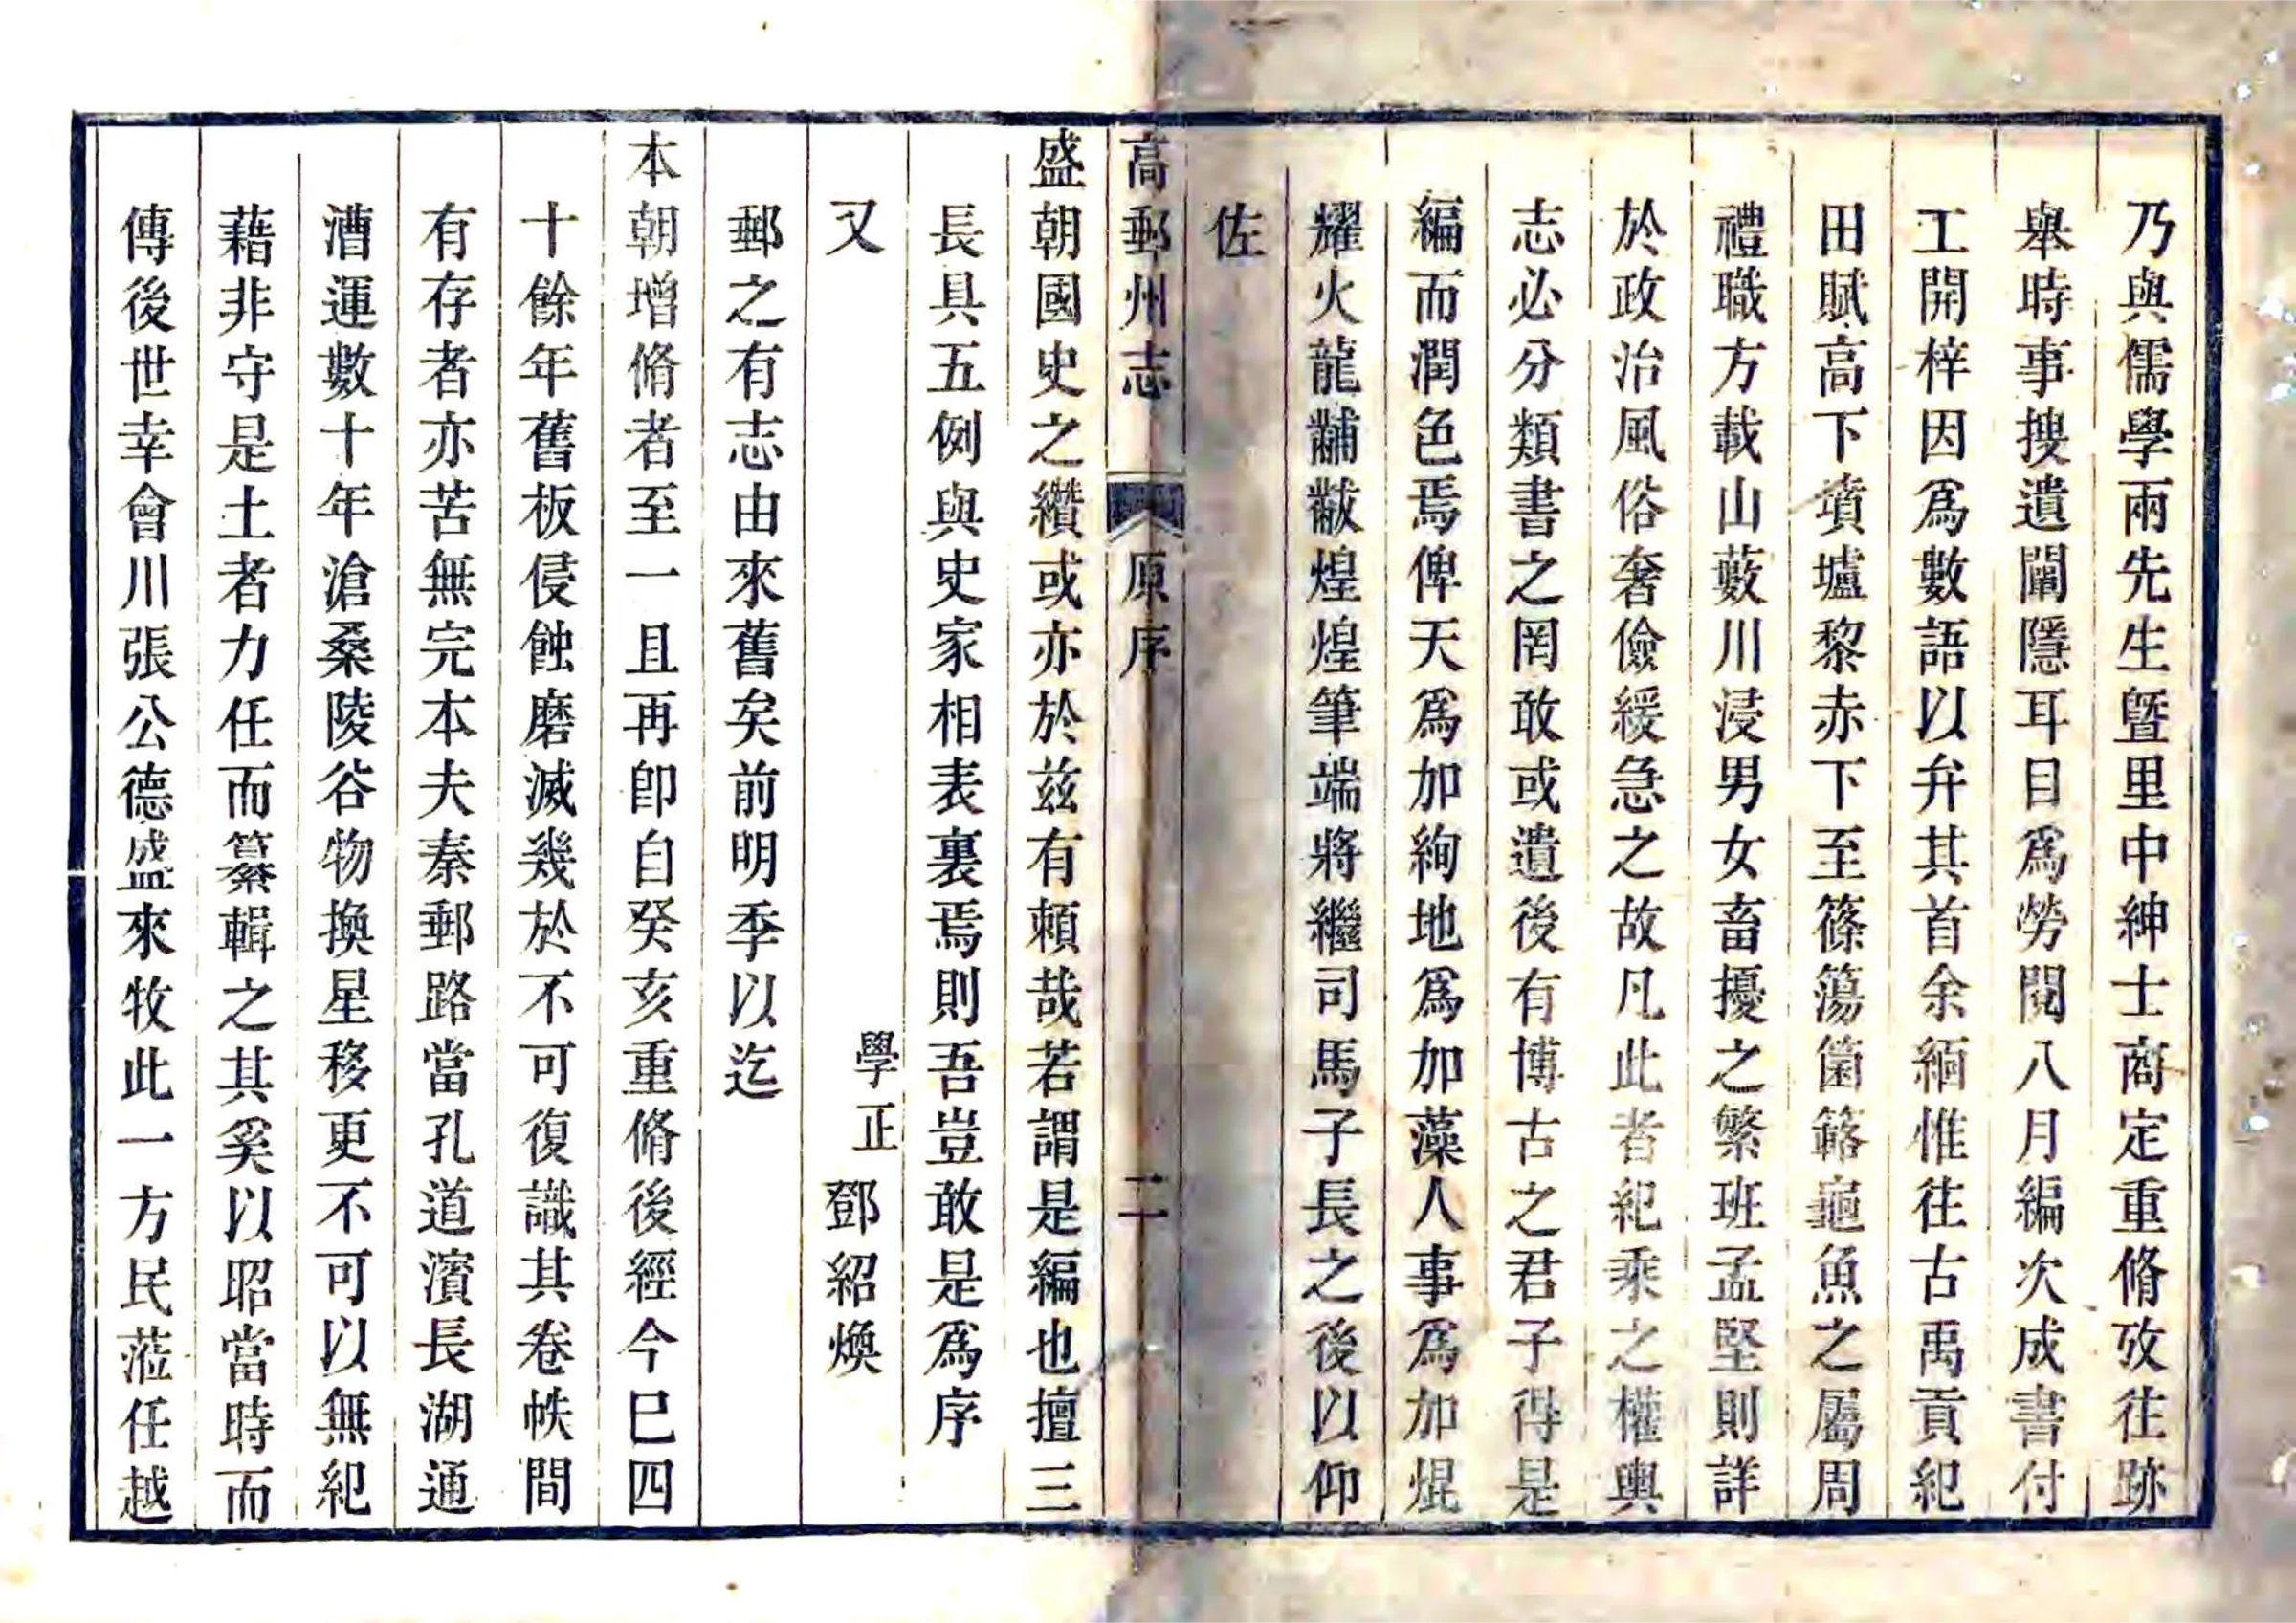 乃與儒學兩先生曁里中紳士商定重脩攷往跡
舉時事搜遺闡隱耳目爲勞閱八月編次成書付
工開梓因爲數語以弁其首余緬惟往古禹貢紀
田賦高下墳壚黎赤下至篠簜箘簵龜魚之屬周
禮職方載山藪川浸男女畜擾之繁班孟堅則詳
於政治風俗奢儉緩急之故凡此者紀乘之權輿
志必分類書之罔敢或遺後有博古之君子得是
編而潤色焉俾天爲加絢地爲加藻人事爲加焜
耀火龍黼黻煌煌筆端將繼司馬子長之後以仰
佐
高郵州志 原序 二
盛朝國史之纘或亦於兹有頼哉若謂是編也擅三
長具五例與史家相表裏焉則吾豈敢是爲序
又 學正 鄧紹煥
郵之有志由來舊矣前明季以迄
本朝增脩者至一且再卽自癸亥重脩後經今巳四
十餘年舊板侵蝕磨滅幾於不可復識其卷帙間
有存者亦苦無完本夫秦郵路當孔道濱長湖通
漕運數十年滄桑陵谷物換星移更不可以無紀
藉非守是土者力任而纂輯之其奚以昭當時而
傳後世幸會川張公德盛來牧此一方民蒞任越